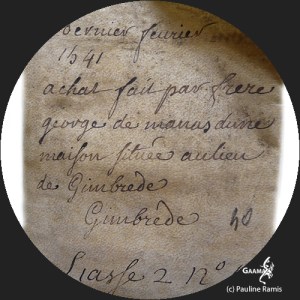 dernier feurier
1541
achat fait par frere
george de manas dune
maison située au lieu
de Gimbrede
Gimbrède
40
Liasse 2 n°
GAAMA
(c) Pauline Ramis